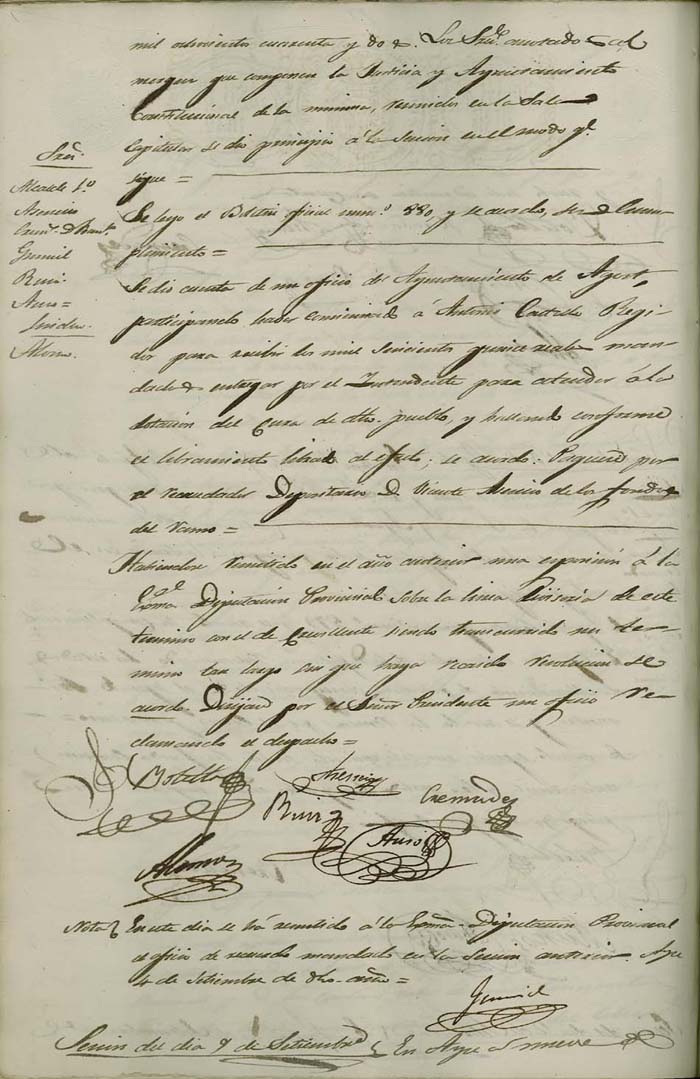 mil ochocientos cuarenta y dos. Los Sres. anotados al
margen que componen la Justicia y Ayuntamiento
Constitucional de la misma, reunidos en la Sala
Capitular se dio principio á la Sesion en el modo qe.
sigue =
Sres.
Alcalde 1.º
Asencio
Gumiel
Ruiz
Auso =
Sindico.
Alonso.
Se leyo el Boletin oficial num.º 880, y se acordo, su Cum-
plimiento =
Se dio cuenta de un oficio del Ayuntamiento de Agost,
participando haber comisionado á Antonio Castello Regi-
dor para recibir los mil seiscientos quince reales man-
dados entregar por el Intendente para atender á la
dotacion del Cura de dho. pueblo, y hallando conforme
el libramiento librado al efecto; se acordo: Paguese por
el recaudador Depositario D. Vicente Asencio de los fondos
del ramo =
Habiendose remitido en el año anterior una esposicion á la
Exma. Diputacion Provincial sobre la linea divisoria de este
termino con el de Crevillente siendo transcurrido un ter-
mino tan largo sin que haya recaido resolucion se
acordo Dirijase por el Señor Presidente un oficio re-
clamando el despacho =
Botella
Asencio
Ruiz
Cremades
Alonso
Auso
Nota En este dia se há remitido á la Exma. Diputacion Provincial
el oficio de recuerdo mandado en la Sesion anterior. Aspe
4 de Setiembre de dho. año =
Gumiel
Sesion del dia 9 de Setiembre En Aspe á nueve